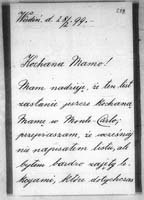 Wiedeń, d. 28/X 99.-
Kochana Mamo!
Mam nadzieję, że ten list
zastanie jeszcze Kochaną
Mamę w Monte Carlo;
przepraszam, że wcześniej
nie napisałem listu, ale
byłem bardzo zajęty le-
kcyami, które dotychczas